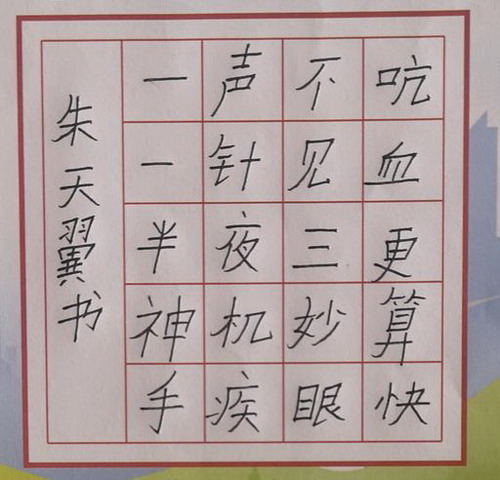 一声不吭
一针见血
半夜三更
神机妙算
手疾眼快
朱天翼书